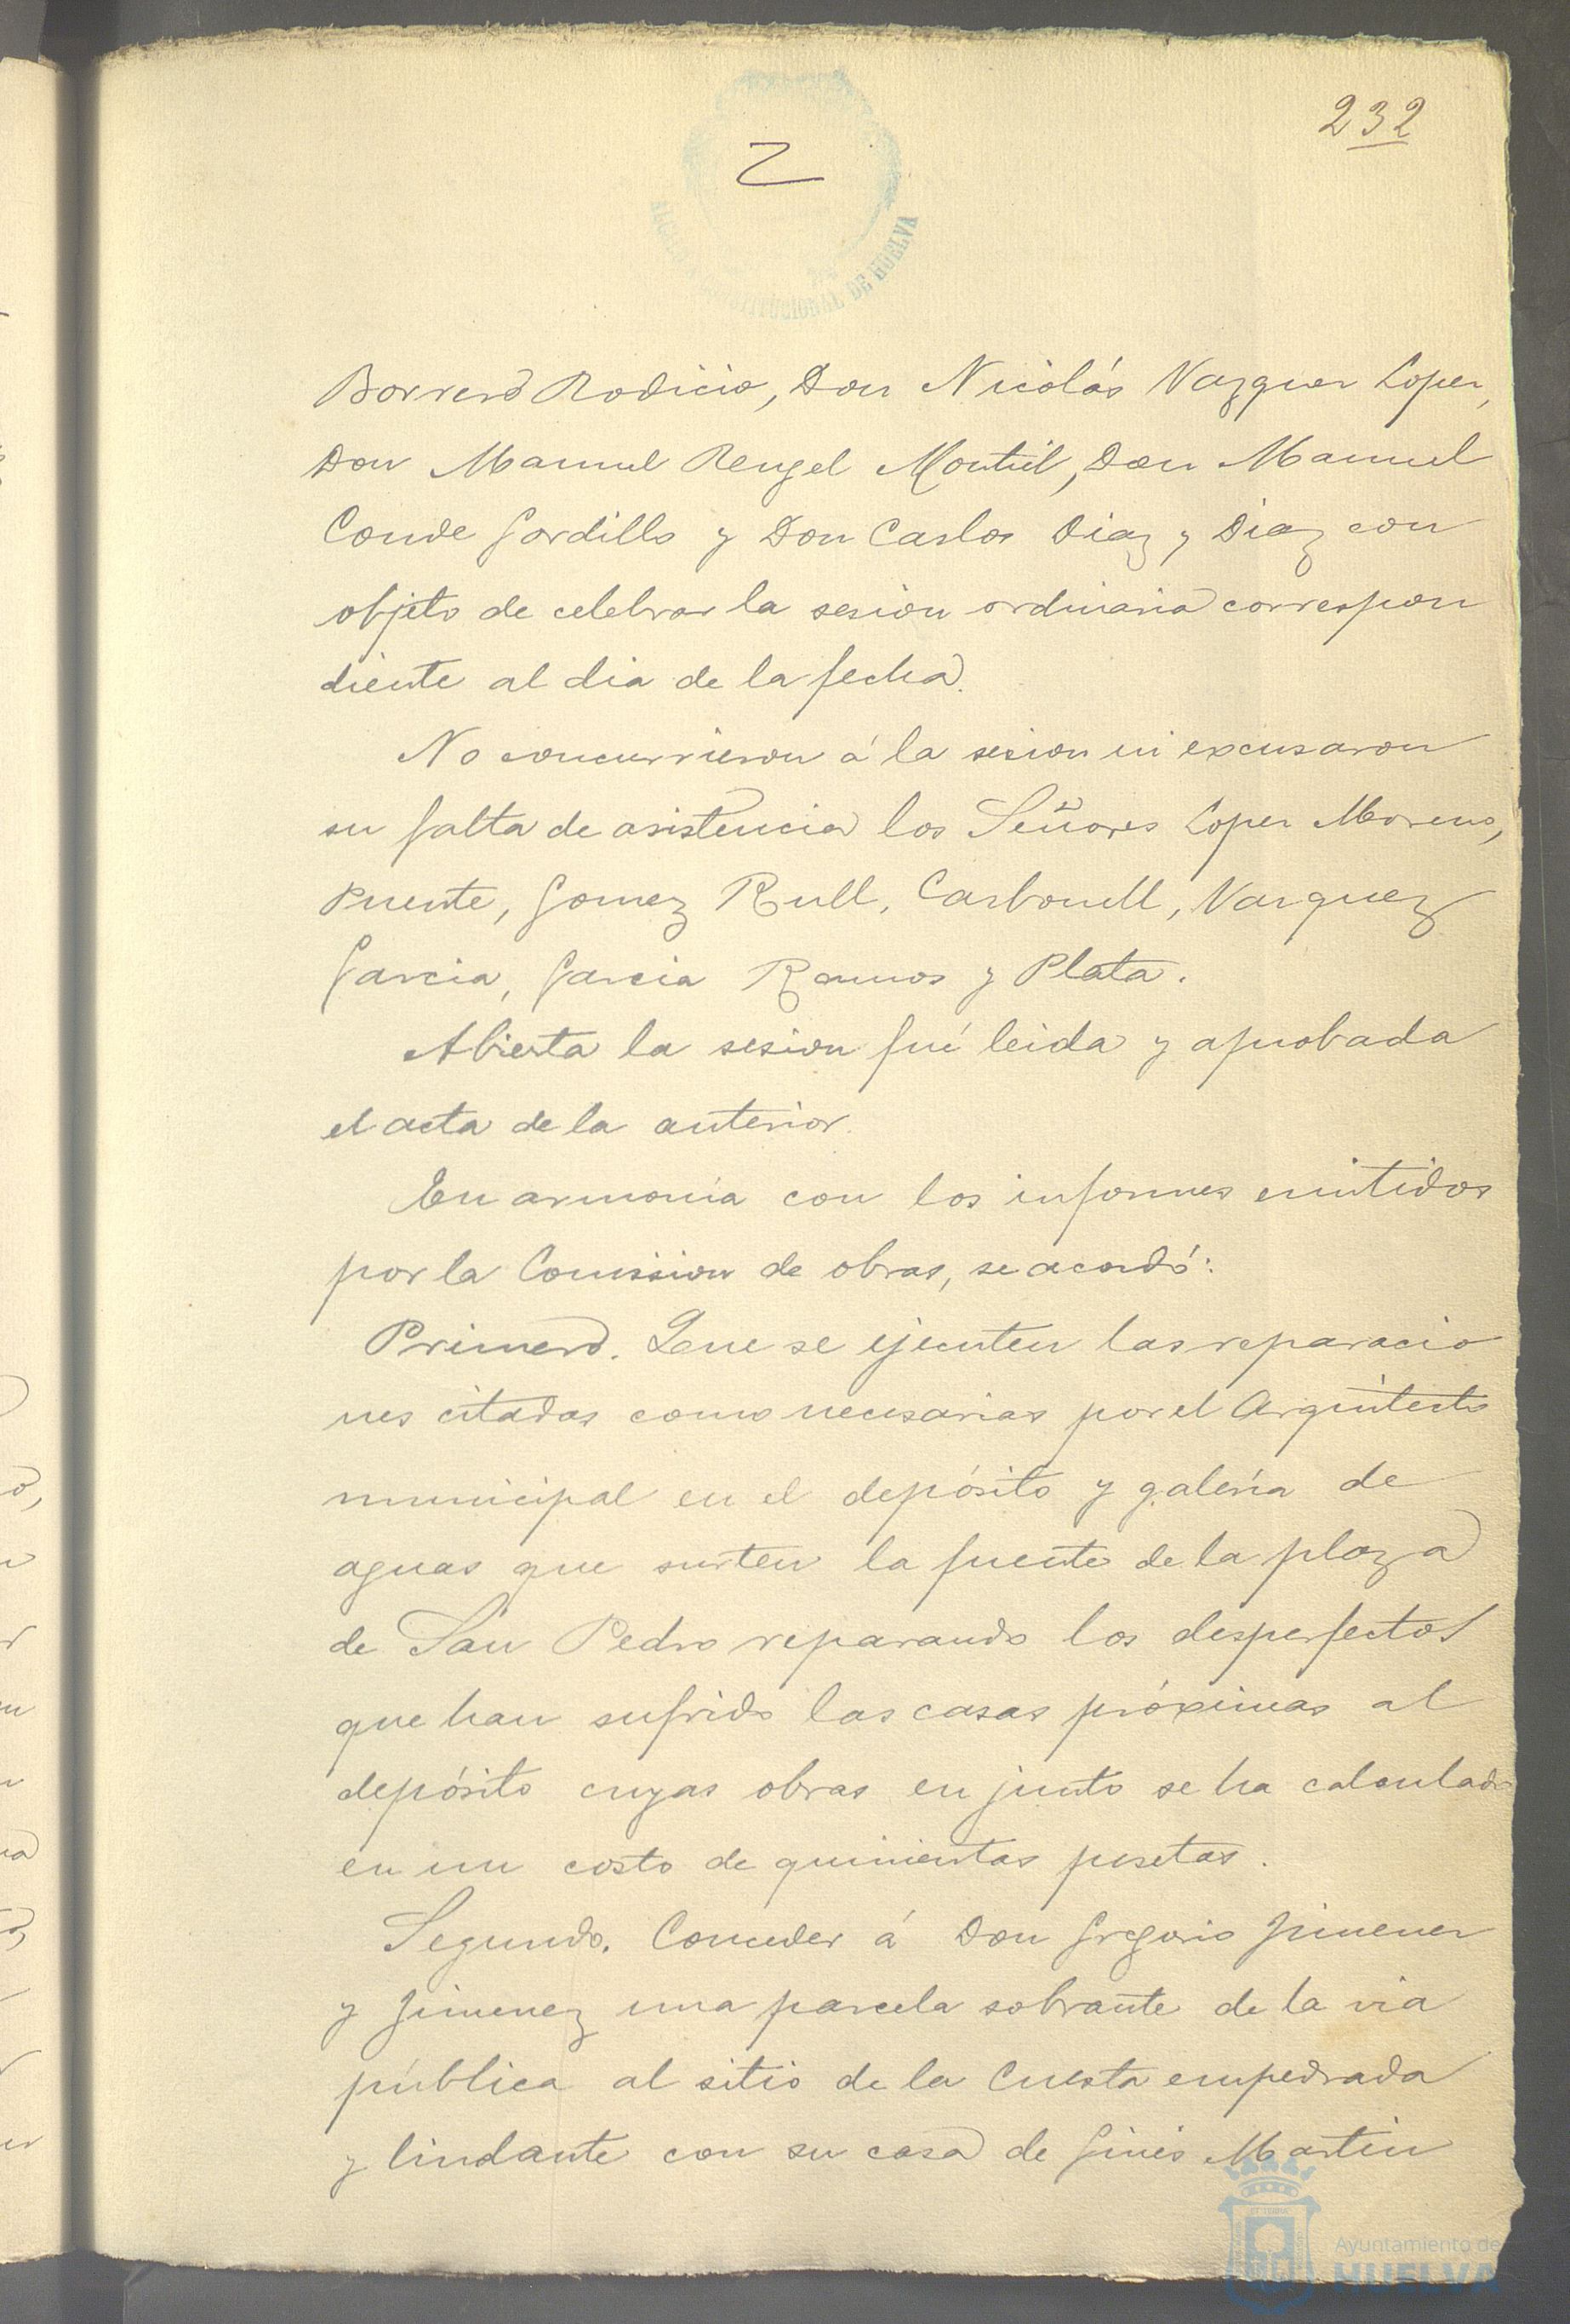 232
ALCALDIA CONSTITUCIONAL DE HUELVA
Borrero Rodicio, Don Nicolás Vazquez Lopez,
Don Manuel Rengel Montiel, Don Manuel
Conde Gordillo y Don Carlos Diaz y Diaz con
objeto de celebrar la sesion ordinaria correspon
diente al dia de la fecha.
No concurrieron á la sesion ni excusaron
su falta de asistencia los Señores Lopez Moreno,
Puente, Gomez Rull, Carbonell, Vazquez
Garcia, Garcia Ramos y Plata.
Abierta la sesion fué leida y aprobada
el acta de la anterior.
En armonía con los informes emitidos
por la Comision de obras, se acordó:
Primero. Que se ejecuten las reparacio
nes citadas como necesarias por el Arquitecto
municipal en el depósito y galería de
aguas que surten la fuente de la plaza
de San Pedro reparando los desperfectos
que han sufrido las casas próximas al
depósito cuyas obras en junto se ha calculado
en un costo de quinientas pesetas.
Segundo. Conceder á Don Gregorio Jimenez
y Jimenez una parcela sobrante de la via
pública al sitio de la Cuesta empedrada
y lindante con su casa de Ginés Martin
Ayuntamiento de
HUELVA